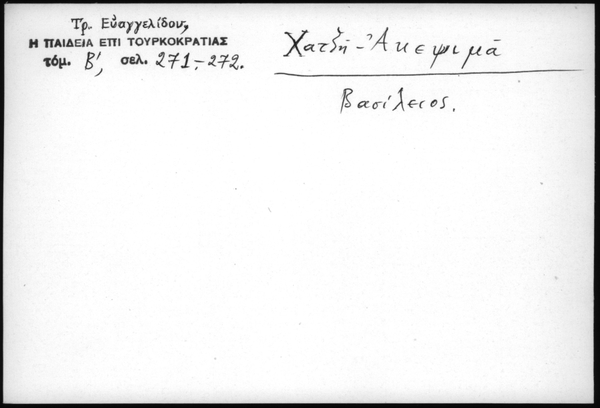 Τρ. Εὐαγγελίδου,
Η ΠΑΙΔΕΙΑ ΕΠΙ ΤΟΥΡΚΟΚΡΑΤΙΑΣ
τόμ. Β', σελ. 271.-272.
Χατζῆ-Ἀκεψιμᾶ
Βασίλειος.